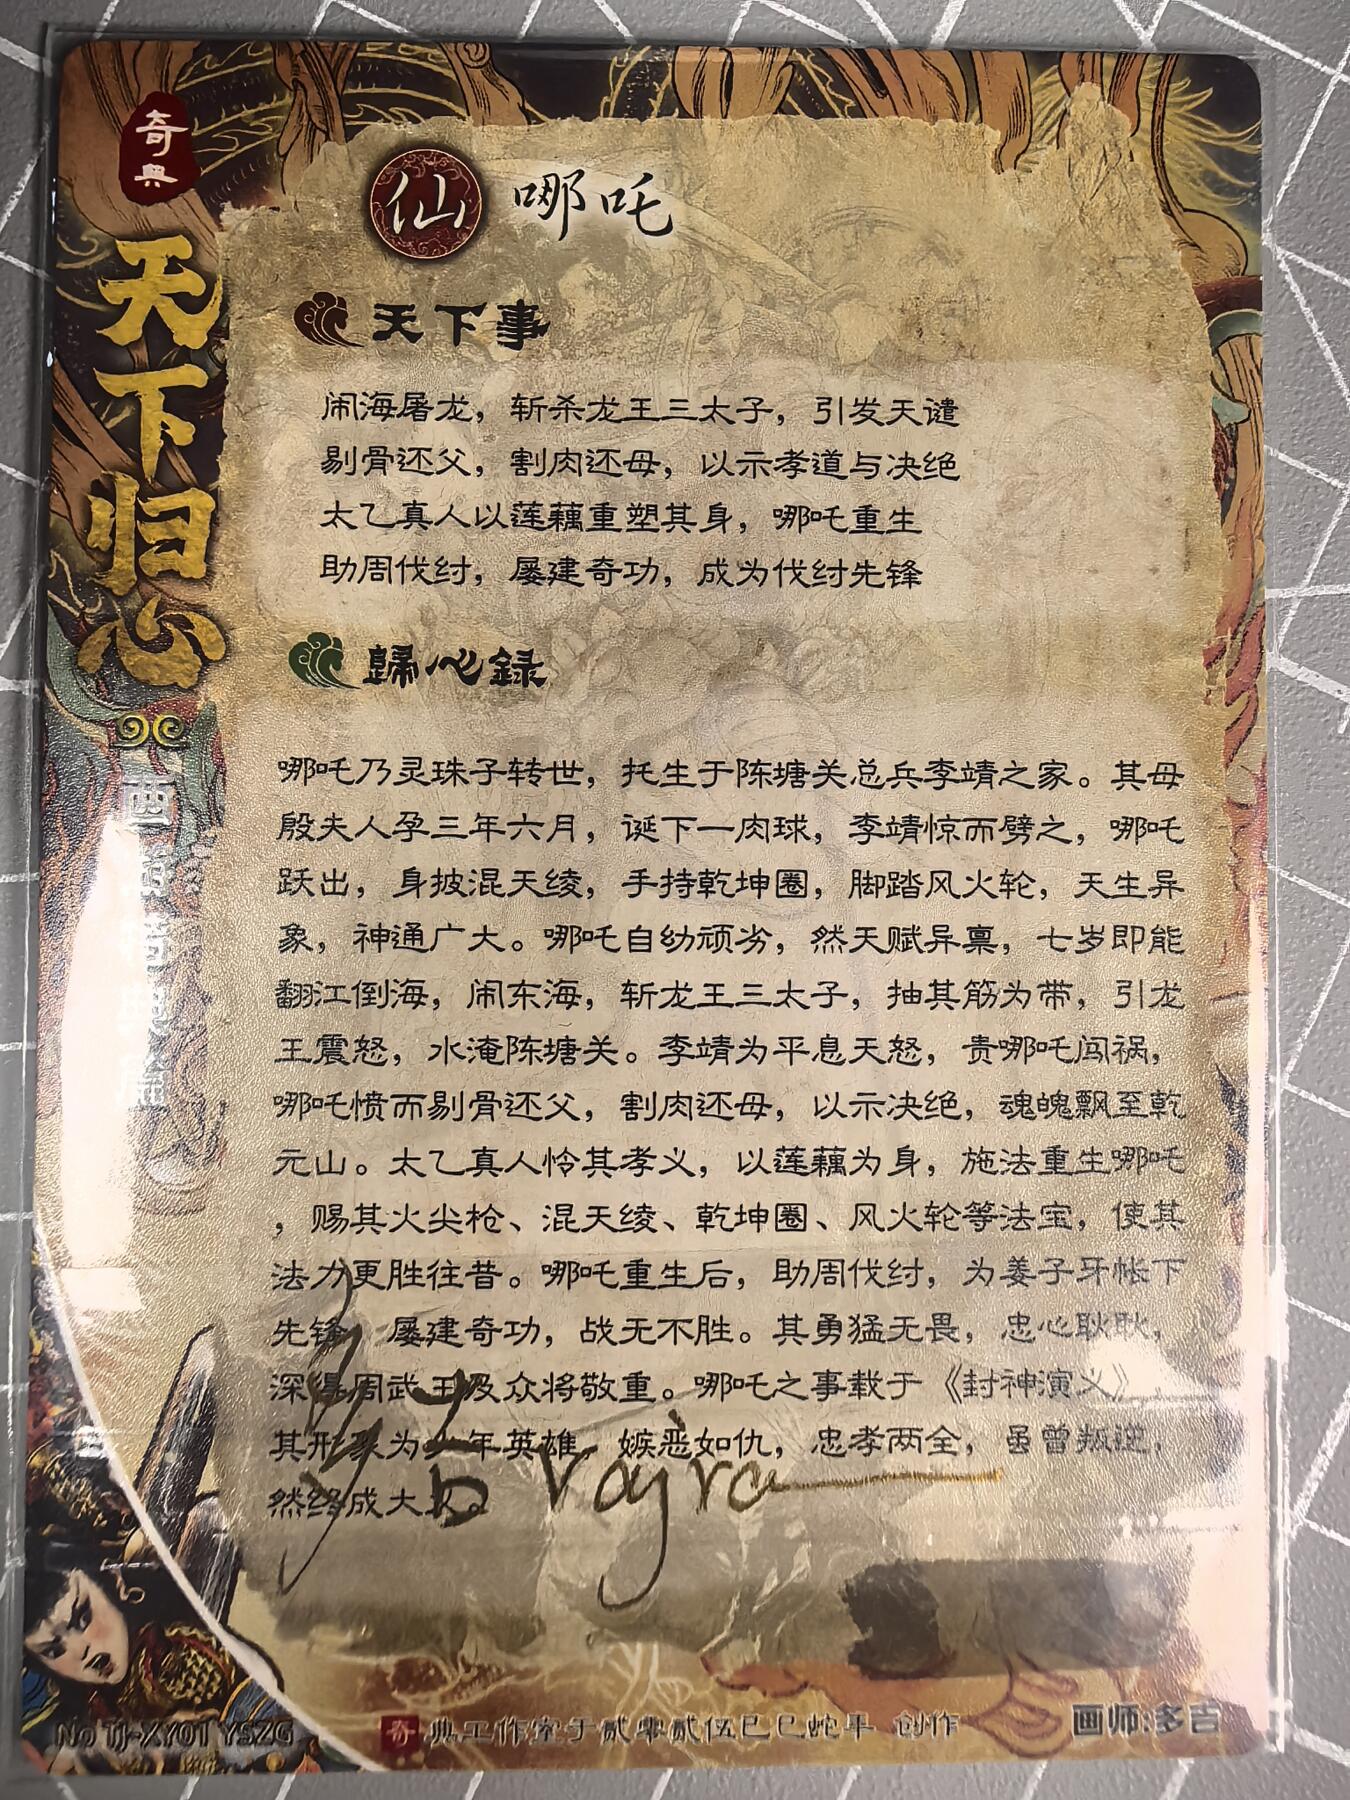 奇典
天下归心
仙 哪吒
天下事
闹海屠龙，斩杀龙王三太子，引发天谴
剔骨还父，割肉还母，以示孝道与决绝
太乙真人以莲藕重塑其身，哪吒重生
助周伐纣，屡建奇功，成为伐纣先锋
歸心録
哪吒乃灵珠子转世，托生于陈塘关总兵李靖之家。其母
殷夫人孕三年六月，诞下一肉球，李靖惊而劈之，哪吒
跃出，身披混天绫，手持乾坤圈，脚踏风火轮，天生异
象，神通广大。哪吒自幼顽劣，然天赋异禀，七岁即能
翻江倒海，闹东海，斩龙王三太子，抽其筋为带，引龙
王震怒，水淹陈塘关。李靖为平息天怒，责哪吒闯祸，
哪吒愤而剔骨还父，割肉还母，以示决绝，魂魄飘至乾
元山。太乙真人怜其孝义，以莲藕为身，施法重生哪吒
，赐其火尖枪、混天绫、乾坤圈、风火轮等法宝，使其
法力更胜往昔。哪吒重生后，助周伐纣，为姜子牙帐下
先锋，屡建奇功，战无不胜。其勇猛无畏，忠心耿耿，
深得周武王及众将敬重。哪吒之事载于《封神演义》，
其形象为少年英雄，嫉恶如仇，忠孝两全，虽曾叛逆，
然终成大义。
vajra
奇典工作室于贰零贰伍巳巳蛇年 创作
画师:多吉